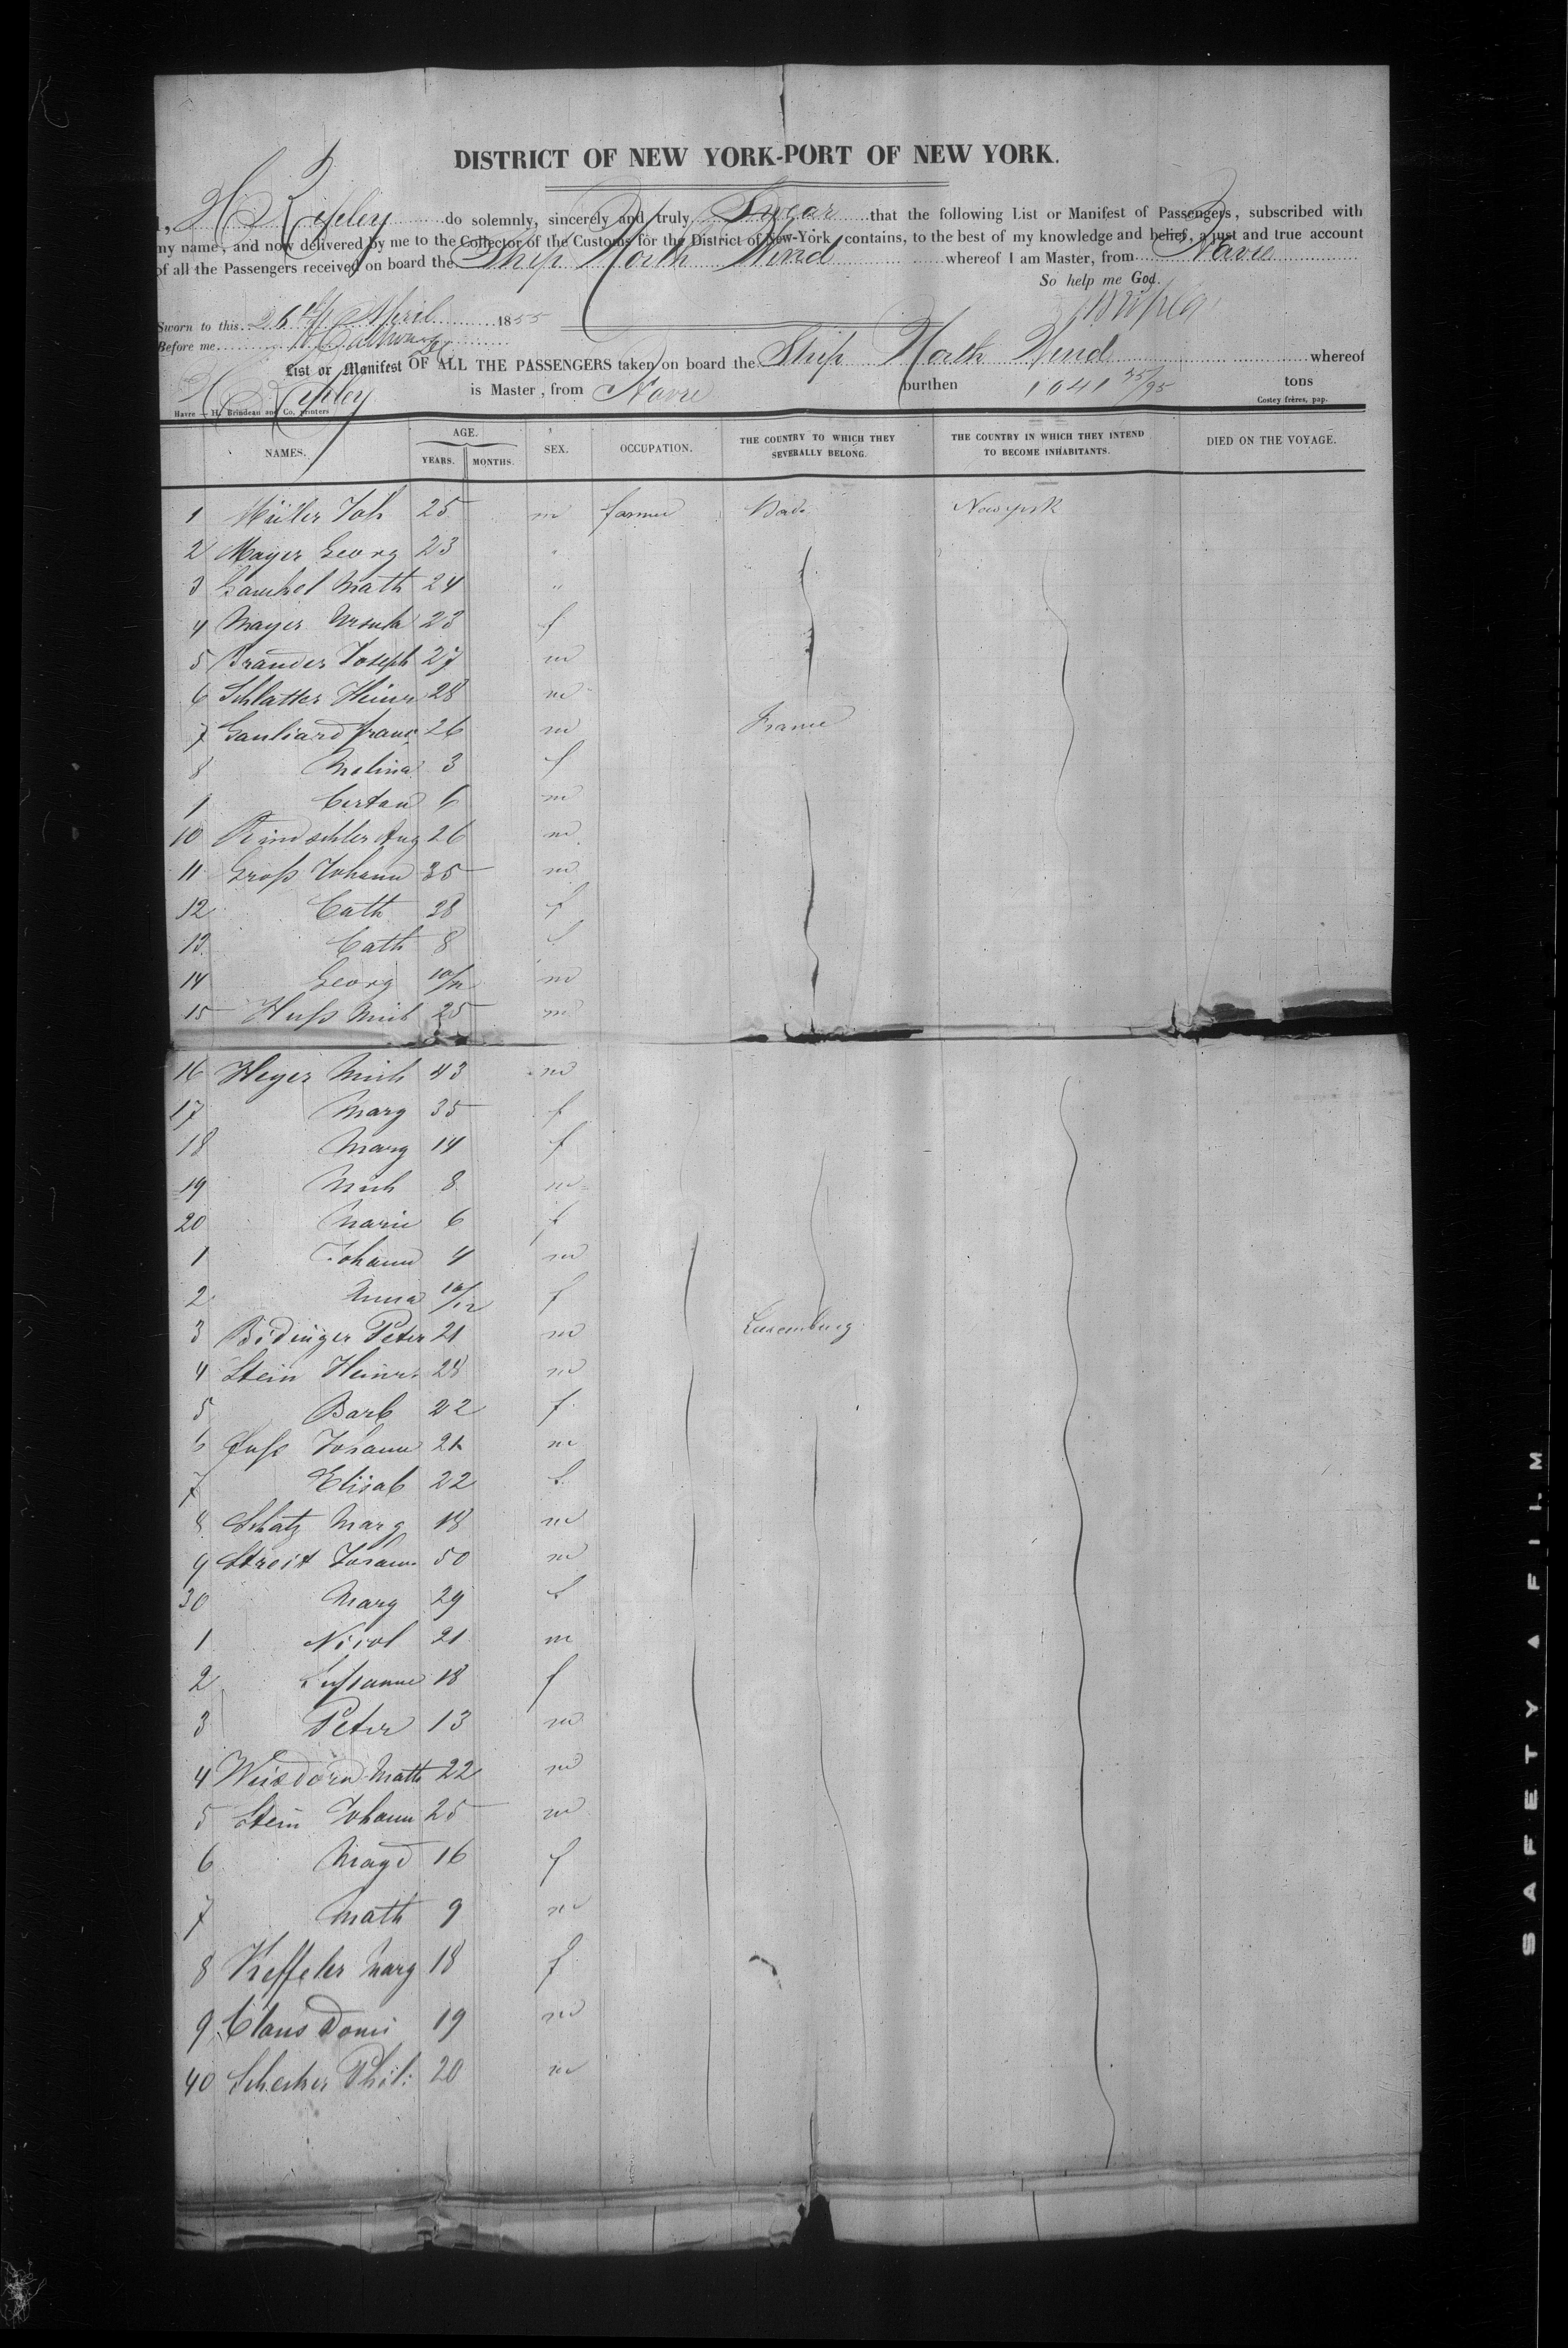 DISTRICT OF NEW YORK-PORT OF NEW YORK.
I, H Ripley do solemnly, sincerely and truly Swear that the following List or Manifest of Passengers, subscribed with
my name, and now delivered by me to the Collector of the Customs for the District of New-York, contains, to the best of my knowledge and belief, a just and true account
of all the Passengers received on board the Ship North Wind whereof I am Master, from Havre
So help me God.
Sworn to this 26th April 1855
Before me
List or Manifest OF ALL THE PASSENGERS taken on board the Ship North Wind whereof
H Ripley is Master, from Havre burthen 1041 35/95 tons
Havre — H. Brindeau and Co, printers
Costey frères, pap.
NAMES. AGE. YEARS. MONTHS. SEX. OCCUPATION. THE COUNTRY TO WHICH THEY SEVERALLY BELONG. THE COUNTRY IN WHICH THEY INTEND TO BECOME INHABITANTS. DIED ON THE VOYAGE.
1 Müller Joh 25 m farmer Bade New york
2 Mayer Georg 23 "
3 Math 24 "
4 Mayer Ursula 23 f
5 Brander Joseph 27 m
6 Schlatter Heinr 28 m
7 Gauliard Franç 26 m France
8 Melina 3 f
1 6 m
10 Kindschler Aug 26 m
11 Groß Johann 35 m
12 Cath 38 f
13 Cath 8 f
14 Georg 10/12 m
15 Huß Mich 25 m
16 Heyer Mich 43 m
17 Marg 35 f
18 Marg 14 f
19 Mich 8 m
20 Marie 6 f
1 Johann 4 m
2 Anna 10/12 f
3 Bidinger Peter 21 m Luxemburg
4 Stein Heinr. 28 m
5 Barb 22 f
6 Johann 21 m
7 Elisab 22 f
8 Schatz Marg 18 m
9 Streit Johann 50 m
30 Marg 29 f
1 Nicol 21 m
2 Sußanne 18 f
3 Peter 13 m
4 Weisdorn Math 22 m
5 Stein Johann 25 m
6 Magd 16 f
7 Math 9 m
8 Keffeler Marg 18 f
9 Claus Domi 19 m
40 Phil: 20 m
SAFETY FILM